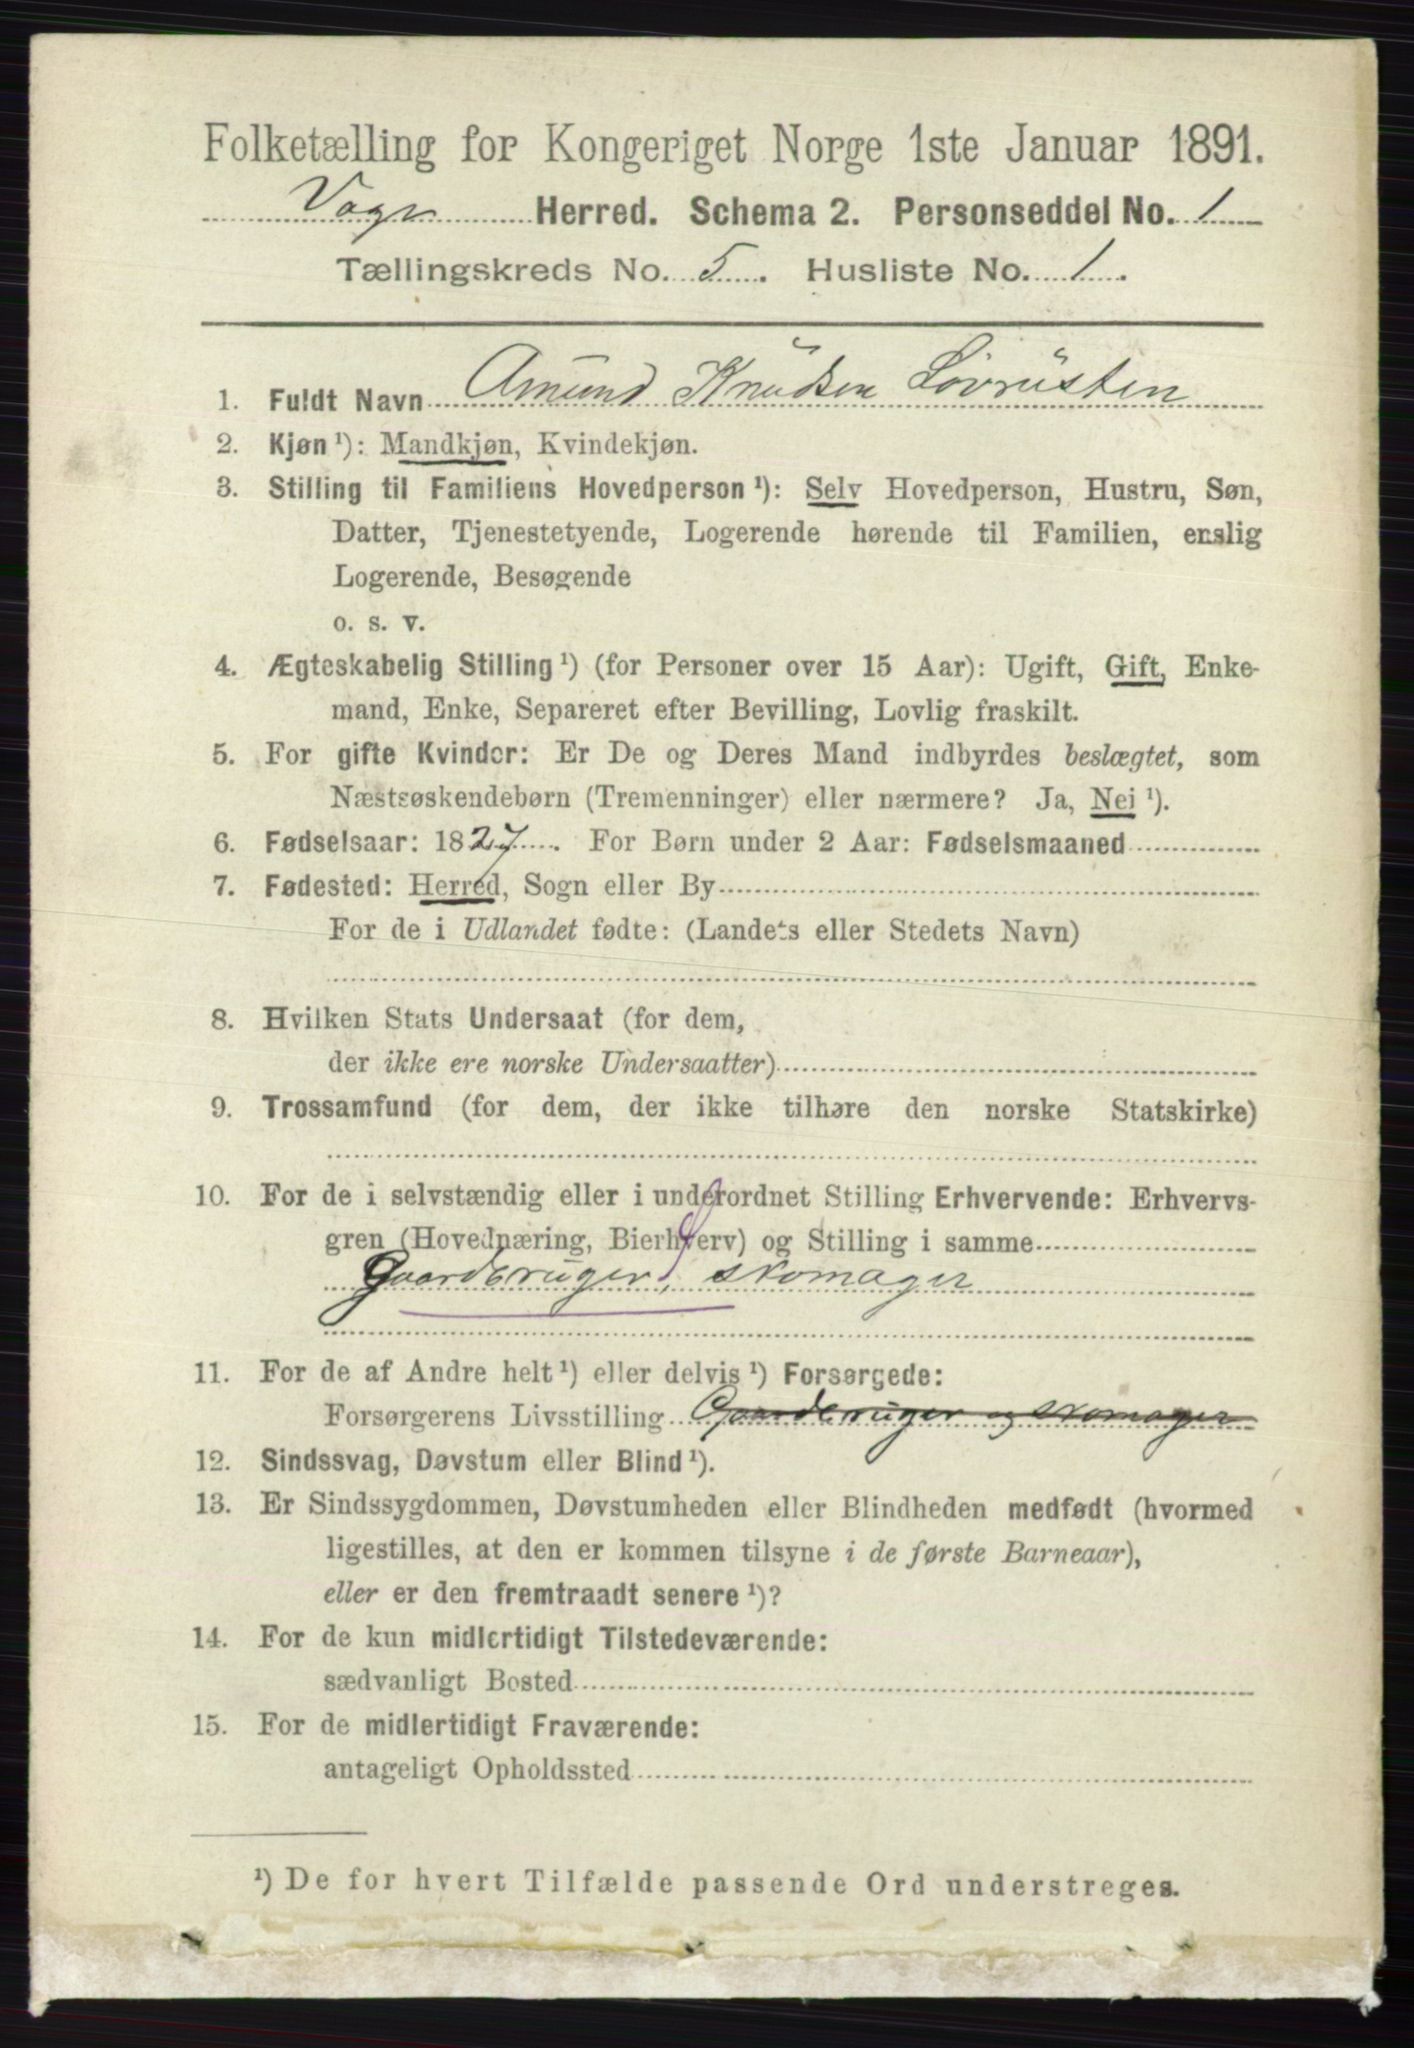 Folketælling for Kongeriget Norge 1ste Januar 1891.
Vage Herred. Schema 2. Personseddel No. 1
Tællingskreds No. 5. Husliste No. 1.
1. Fuldt Navn Amund Knudsen Lövrusten
2. Kjøn ¹): Mandkjøn, Kvindekjøn.
3. Stilling til Familiens Hovedperson ¹): Selv Hovedperson, Hustru, Søn,
Datter, Tjenestetyende, Logerende hørende til Familien, enslig
Logerende, Besøgende
o. s. v.
4. Ægteskabelig Stilling ¹) (for Personer over 15 Aar): Ugift, Gift, Enke-
mand, Enke, Separeret efter Bevilling, Lovlig fraskilt.
5. For gifte Kvinder: Er De og Deres Mand indbyrdes beslægtet, som
Næstsøskendebørn (Tremenninger) eller nærmere? Ja, Nei ¹).
6. Fødselsaar: 1827. For Børn under 2 Aar: Fødselsmaaned
7. Fødested: Herred, Sogn eller By
For de i Udlandet fødte: (Landets eller Stedets Navn)
8. Hvilken Stats Undersaat (for dem,
der ikke ere norske Undersaatter)
9. Trossamfund (for dem, der ikke tilhøre den norske Statskirke)
10. For de i selvstændig eller i underordnet Stilling Erhvervende: Erhvervs-
gren (Hovednæring, Bierhverv) og Stilling i samme
Gaardbruger, skomager
11. For de af Andre helt ¹) eller delvis ¹) Forsørgede:
Forsørgerens Livsstilling Gaardbruger og skomager
12. Sindssvag, Døvstum eller Blind ¹).
13. Er Sindssygdommen, Døvstumheden eller Blindheden medfødt (hvormed
ligestilles, at den er kommen tilsyne i de første Barneaar),
eller er den fremtraadt senere ¹)?
14. For de kun midlertidigt Tilstedeværende:
sædvanligt Bosted
15. For de midlertidigt Fraværende:
antageligt Opholdssted
¹) De for hvert Tilfælde passende Ord understreges.